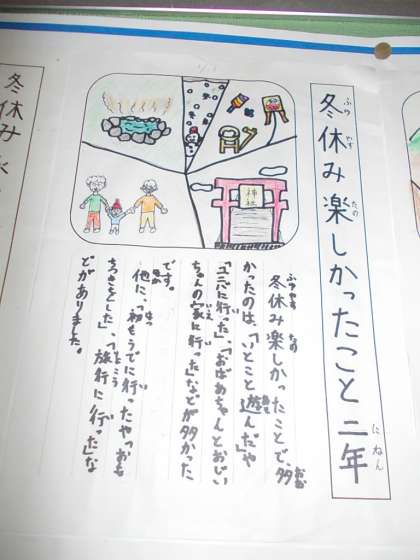 冬休み楽しかったこと 二年
神社
冬休み楽しかったことで、多
かったのは、「いとこと遊んだ」や
「ユニバに行った」、「おばあちゃんとおじい
ちゃんの家に行った」などが多かった
です。
他に、「初もうでに行ったや「おも
ちつきをした」、「旅行に行った」な
どがありました。
冬休み